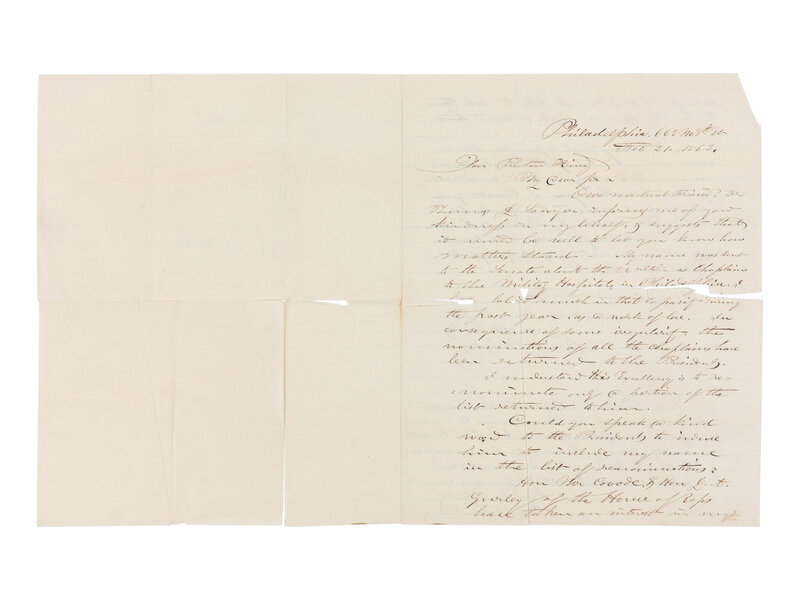 Philadelphia, 662 No 8th St
Feb 20. 1863.
Hon Preston King
My Dear Sir -
Our mutual Friend, Dr
Thomas J Sawyer, informs me of your
kindness in my behalf, & suggests that
it would be well to let you know how
matters stands - My name was sent
to the Senate about the ultimo as Chaplain
to the Military Hospitals in Philadelphia. I
have labored much in that capacity during
the past year as a work of love. In
consequence of some irregularity the
nominations of all the Chaplains have
been returned to the Presidents.
I understand this Excellency is to re-
nominate only a portion of the
list returned to him.
Could you speak a kind
word to the Presidents to induce
him to include my name
in the list of renominations?
Hon Covode, & Hon J. A.
Gurley of the House of Reps
have taken an interest in my